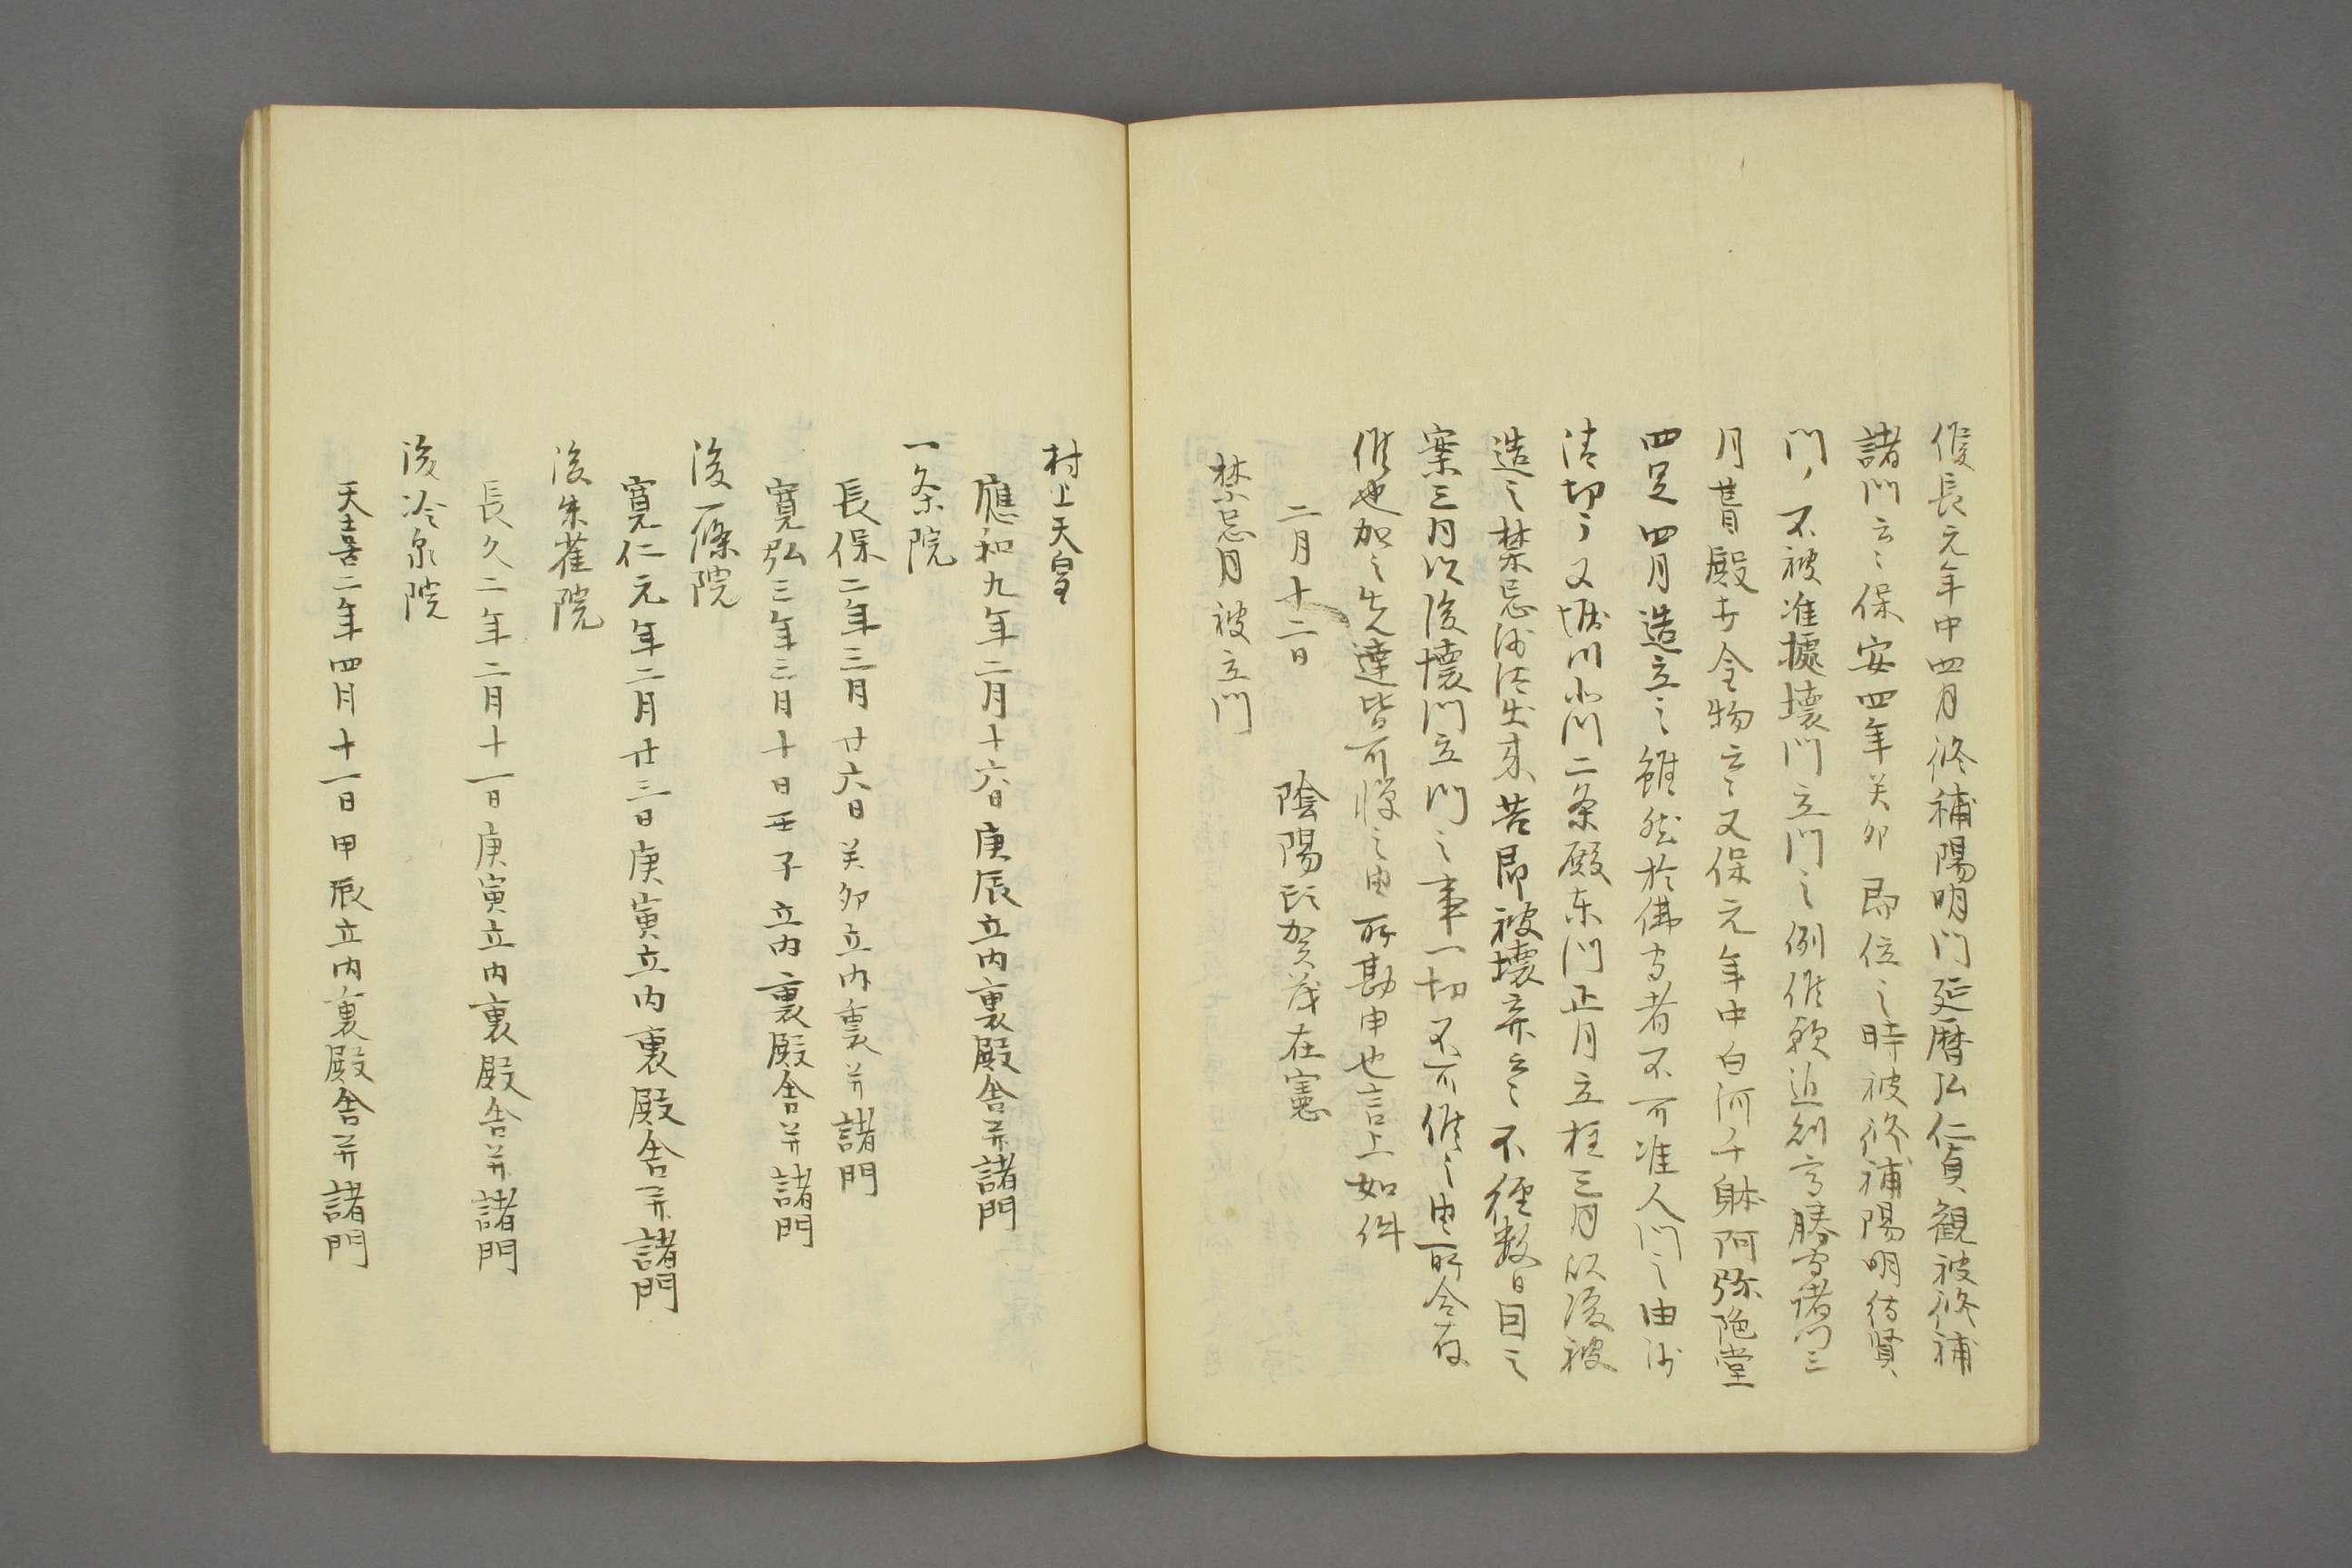 俊長元年中四月修補陽明門延暦弘仁貞観被修補
諸門云々保安四年癸卯即位之時被修補陽明待賢
門、不被准據壊門立門之例依願近
月葺殿、又保元年中白河千躰阿弥陀堂
四足四月造立之雖然於佛寺者不可准人門之由
又堀川小門二条殿東門正月立柱三月以後被
造之禁忌出来若即被壊弃云々不経数日因之
案三月以後壊門立門之事一切不可依之由所令存
候也加之先達皆可憚之由所勘申也言上如件
二月十二日 陰陽頭賀茂在憲
禁忌月被立門
村上天皇
應和九年二月十六日庚辰立内裏殿舎并諸門
一条院
長保二年三月廿六日癸卯立内裏并諸門
寛弘三年三月十日壬子立内裏殿舎并諸門
後一條院
寛仁元年二月廿三日庚寅立内裏殿舎并諸門
後朱雀院
長久二年二月十一日庚寅立内裏殿舎并諸門
後冷泉院
天喜二年四月十一日甲辰立内裏殿舎并諸門